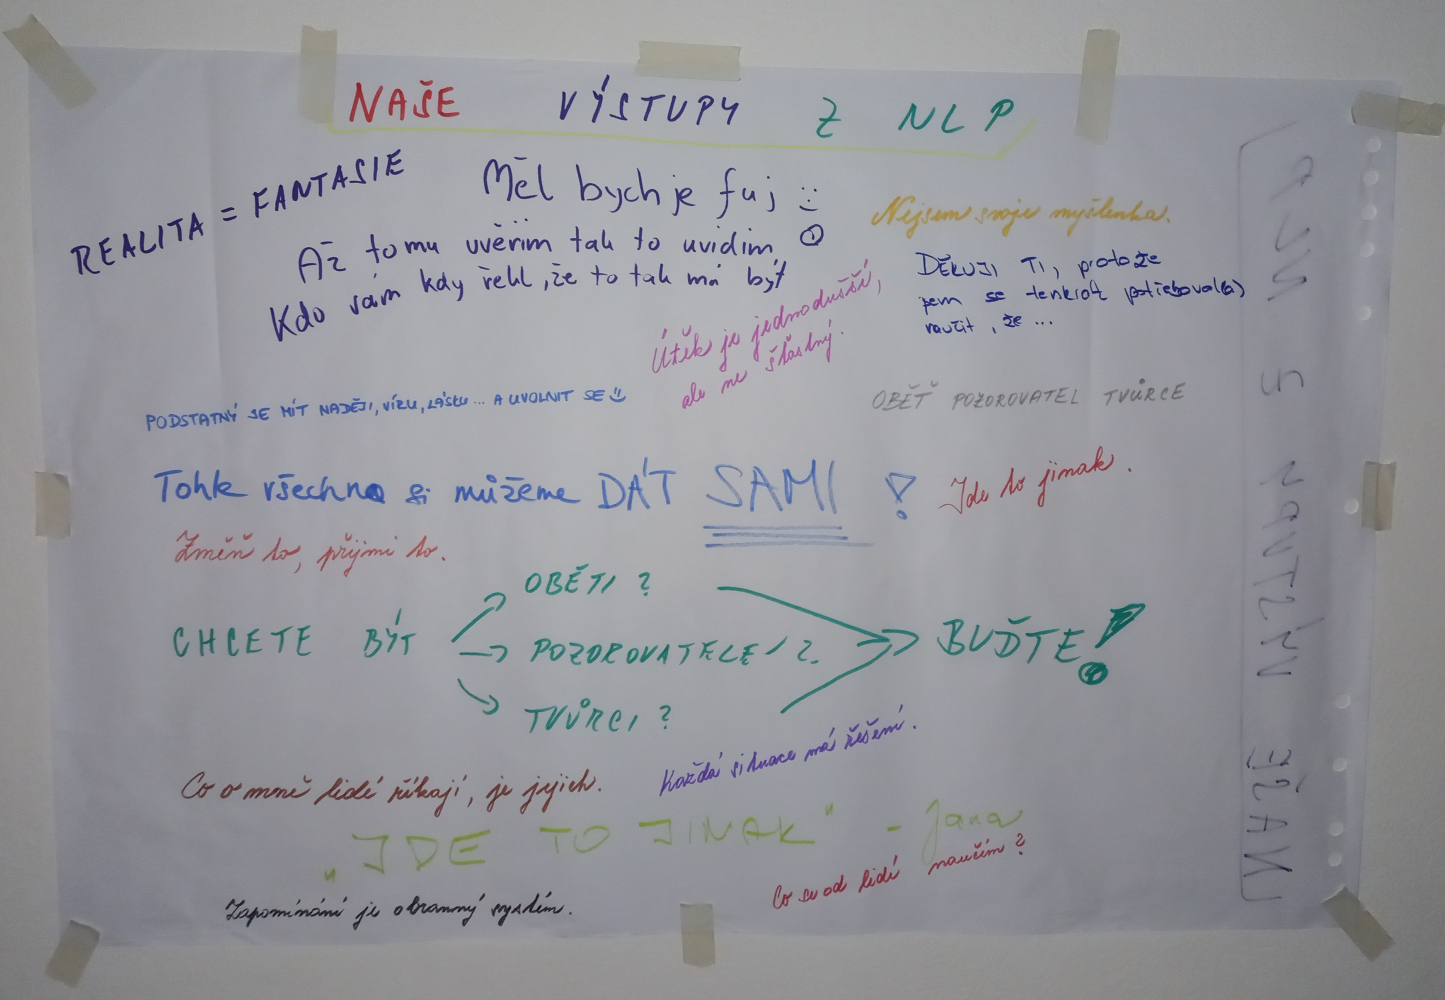 NAŠE VÝSTUPY Z NLP
REALITA = FANTASIE
Měl bych je fuj
Až tomu uvěřím tak to uvidím
Kdo vám kdy řekl, že to tak má být
Nejsem svoje myšlenka.
DĚKUJI TI, protože
jsem se tenkrát potřeboval(a)
naučit, že ...
Útěk je jednodušší,
ale ne šťastný.
PODSTATNÝ SE MÍT NADĚJI, VÍZU, LÁSKU ... A UVOLNIT SE
OBĚŤ POZOROVATEL TVŮRCE
Tohle všechno si můžeme DÁT SAMI !
Jde to jinak.
Změň to, přijmi to.
CHCETE BÝT
OBĚTI ?
POZOROVATELÉ ?
TVŮRCI ?
BUĎTE !
Každá situace má řešení.
Co o mně lidé říkají, je jejich.
„JDE TO JINAK" - Jana
Co se od lidí naučím ?
Zapomínání je obranný systém.
NAŠE